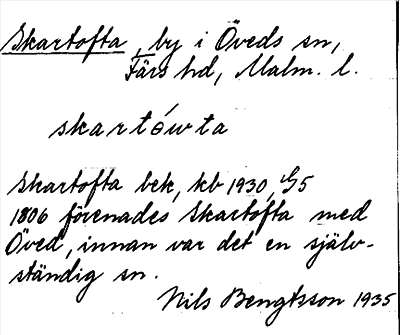 Skartofta, by i Öveds sn,
Färs hd, Malm. l.
skartówta
Skartofta bek, kb 1930, G5
1806 förenades Skartofta med
Öved, innan var det en själv-
ständig sn.
Nils Bengtsson 1935